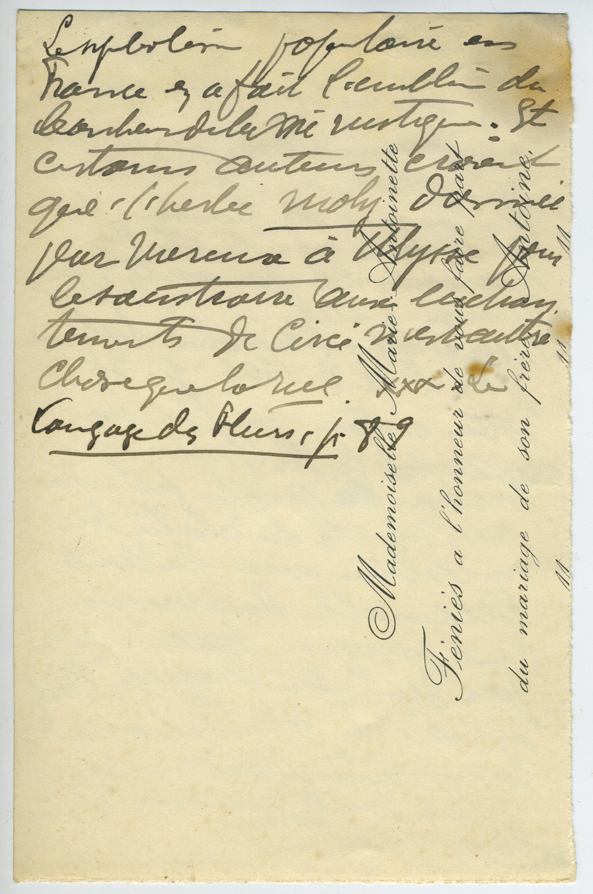 Le symbolisme populaire en
France en a fait l'emblème du
bonheur de la vie rustique. Et
certains auteurs croient
que l'herbe moly donnée
par Mercure à Ulysse pour
le soustraire aux enchan
tements de Circé n'est autre
chose que la rue. xxx Le
Langage des Fleurs, p. 89
Mademoiselle Marie-Antoinette
Féniès a l'honneur de vous faire part
du mariage de son frère Antoine,